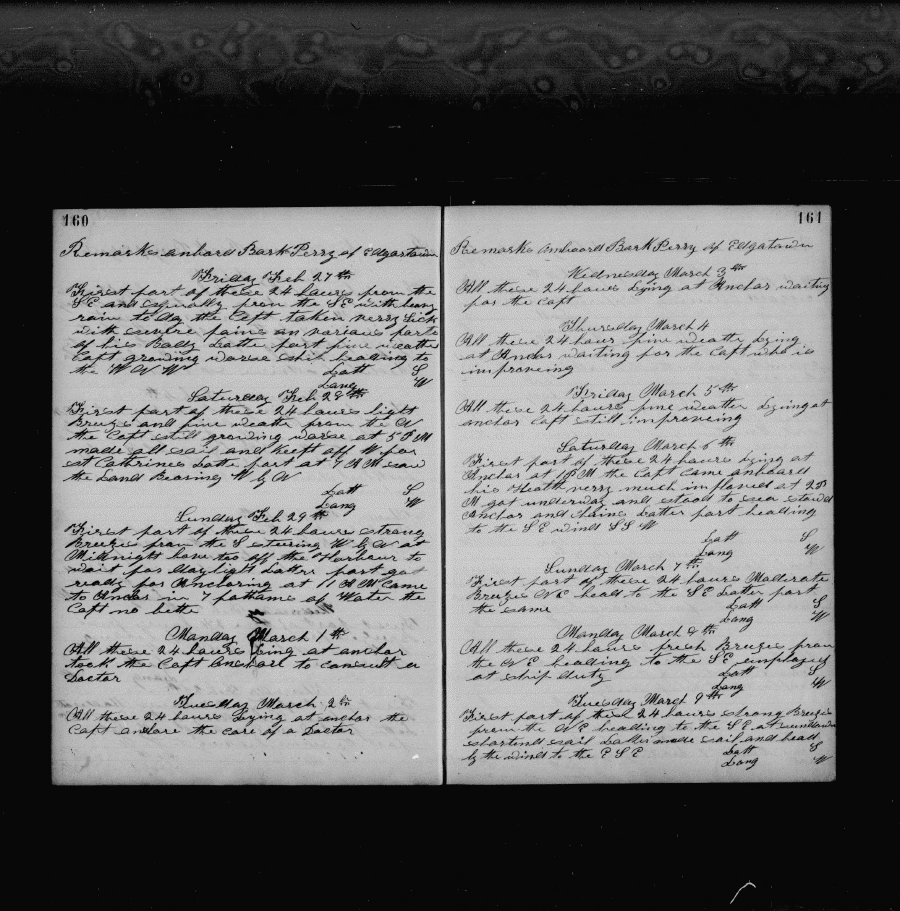 160
Remarks onbord Bark Perry of Edgartown
Friday Feb 27th
First part of these 24 hours from the
SE and squally from the SE with heavy
rain to day the Capt taken verry Sick
with severe pains in various parts
of his Body Latte part fine weather
Capt growing worse ship heading to
the W N W
Latt S
Long W
Saturday Feb 28th
First part of these 24 hours light
Breeze and fine weath from the N
the Capt still growing worse at 5 P M
made all sail and Keept off W for
st Cathrines Latte part at 7 A M saw
the Land Bearing W by N
Latt S
Long W
Sunday Feb 29th
First part of these 24 hours strong
Breeze from the S stering W by N at
Midnight hove too off the Harbour to
wait for daylight Latter part got
ready for Anchoring at 11 A M Came
to Anchor in 7 fathams of Water the
Capt no bette
Monday March 1th
All these 24 hours Lying at anchor
took the Capt on shore to consult a
Doctor
Tuesday March 2th
All these 24 hours Lying at anchor the
Capt onshore the care of a Doctor
161
Remarks onboord Bark Perry of Edgatown
Wednesday March 3th
All these 24 hours Lying at Anchor waiting
for the Capt
Thursday March 4
All these 24 hour fine weath Lying
at Anchor waiting for the Capt who is
improveing
Friday March 5th
All these 24 hours fine weather Lying at
anchor Capt still improveing
Saturday March 6th
First part of these 24 hours Lying at
Anchor at 1 P M the Capt Came onboard
his Health verry much improved at 2 P
M got underway and stood to sea stowed
Anchors and chains Latter part heading
to the S E wind S S W
Latt S
Long W
Sunday March 7th
First part of these 24 hours Moderate
Breeze N E head to the S E Latter part
the same
Latt S
Long W
Monday March 8th
All these 24 hours fresh Breeze from
the N E heading to the S E employed
at ship duty
Latt S
Long W
Tuesday March 9th
First part of these 24 hours strong Breeze
from the N E heading to the S E at sundown
shortend sail Latter made sail and head
by the wind to the E S E
Latt S
Long W